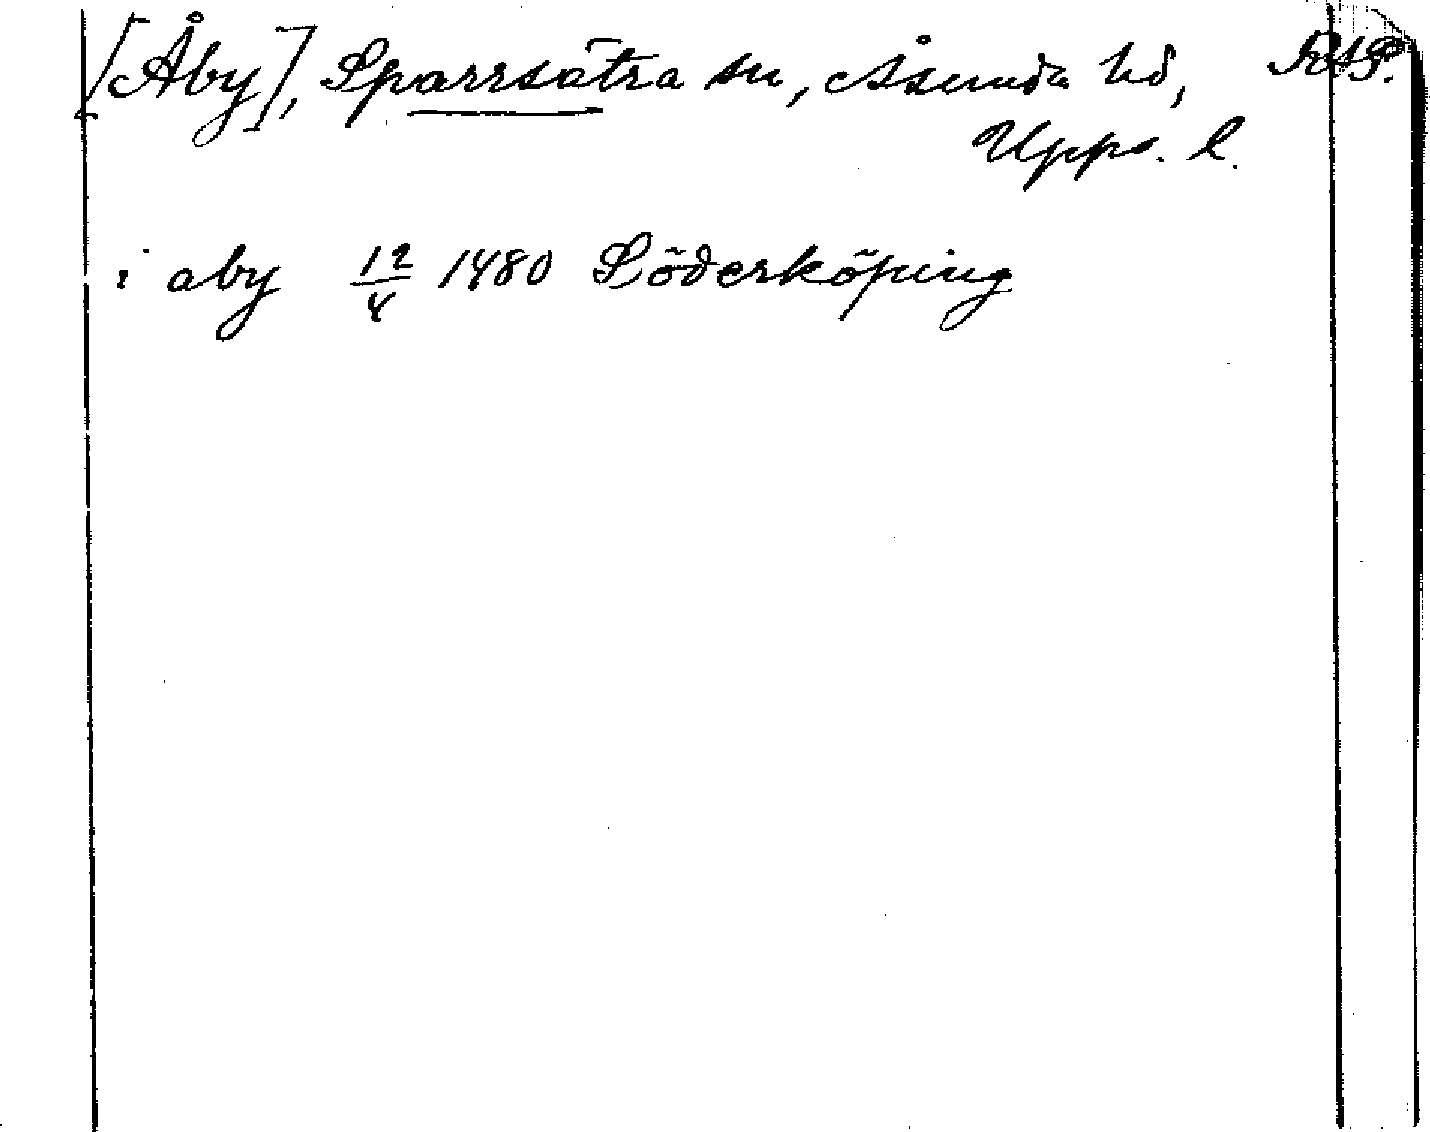 [Åby], Sparrsätra sn, Åsunda hd, RAP.
Upps. l.
i aby 12/4 1480 Söderköping